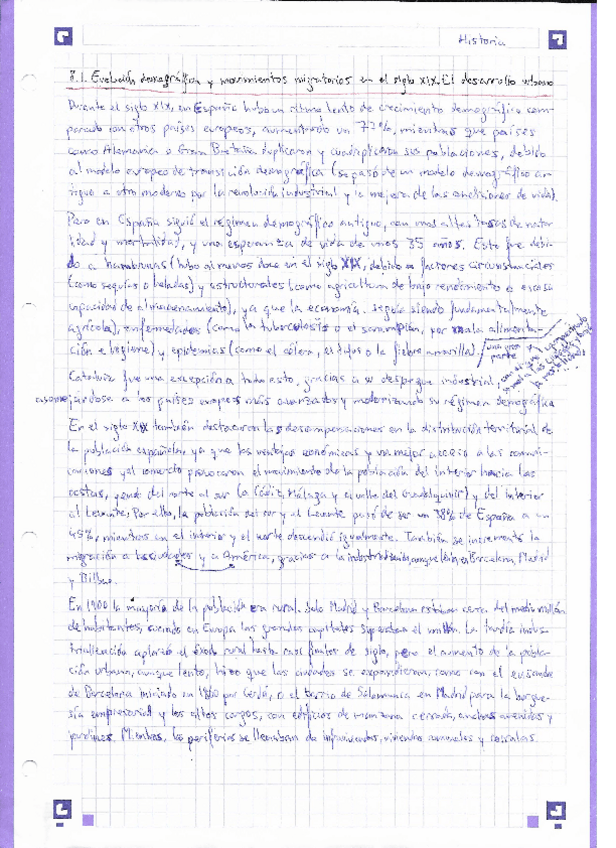 Historia
8.1. Evolución demográfica y movimientos migratorios en el siglo XIX. El desarrollo urbano
Durante el siglo XIX, en España hubo un ritmo lento de crecimiento demográfico com-
parado con otros países europeos, aumentando un 77%, mientras que países
como Alemania o Gran Bretaña duplicaron y cuadruplicaron sus poblaciones, debido
al modelo europeo de transición demográfica (se pasó de un modelo demográfico an-
tiguo a otro moderno por la revolución industrial y la mejora de las condiciones de vida).
Pero en España siguió el régimen demográfico antiguo, con unas altas tasas de nata-
lidad y mortalidad, y una esperanza de vida de unos 35 años. Esto fue debi-
do a hambrunas (hubo al menos doce en el siglo XIX, debido a factores circunstanciales
(como sequías o heladas) y estructurales (como agricultura de bajo rendimiento o escasa
capacidad de almacenamiento), ya que la economía seguía siendo fundamentalmente
agrícola), enfermedades (como la tuberculosis o el sarampión, por mala alimenta-
ción e higiene) y epidemias (como el cólera, el tifus o la fiebre amarilla)
una gran
parte
Cataluña fue una excepción a todo esto, gracias a su despegue industrial,
asemejándose a los países europeos más avanzados y modernizando su régimen demográfico
En el siglo XIX también destacaron las descompensaciones en la distribución territorial de
la población española, ya que las ventajas económicas y un mejor acceso a las comuni-
caciones y al comercio provocaron el movimiento de la población del interior hacia las
costas, yendo del norte al sur (a Cádiz, Málaga y el valle del Guadalquivir) y del interior
al Levante. Por ello, la población del sur y el Levante pasó de ser un 38% de España a un
45%, mientras en el interior y el norte descendió igualmente. También se incrementó la
migración a las ciudades y a América, gracias a la industrialización, aunque leve, en Barcelona, Madrid
y Bilbao.
En 1900 la mayoría de la población era rural. Solo Madrid y Barcelona estaban cerca del medio millón
de habitantes, cuando en Europa las grandes capitales superaban el millón. La tardía indus-
trialización aplazó el éxodo rural hasta casi finales de siglo, pero el aumento de la pobla-
ción urbana, aunque lento, hizo que las ciudades se expandieran, como con el ensanche
de Barcelona iniciado en 1860 por Cerdá, o el barrio de Salamanca en Madrid para la burgue-
sía empresarial y los altos cargos, con edificios de manzana cerrada, anchas avenidas y
jardines. Mientras, las periferias se llenaban de infraviviendas, viviendas comunales y corralas.